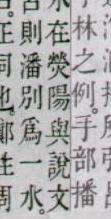 林之例。手部播
水在熒陽與說文
則潘別爲一水。
正同也。鄭注周